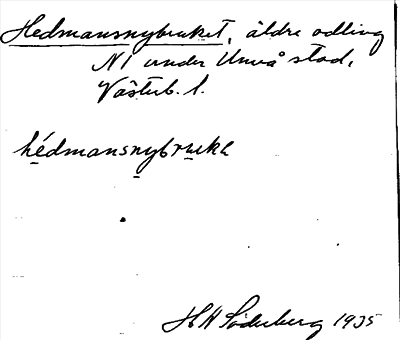 Hedmansnybruket, äldre odling
N1 under Umeå stad,
Västerb. l.
hédmansnybrukə
H H Söderberg 1935